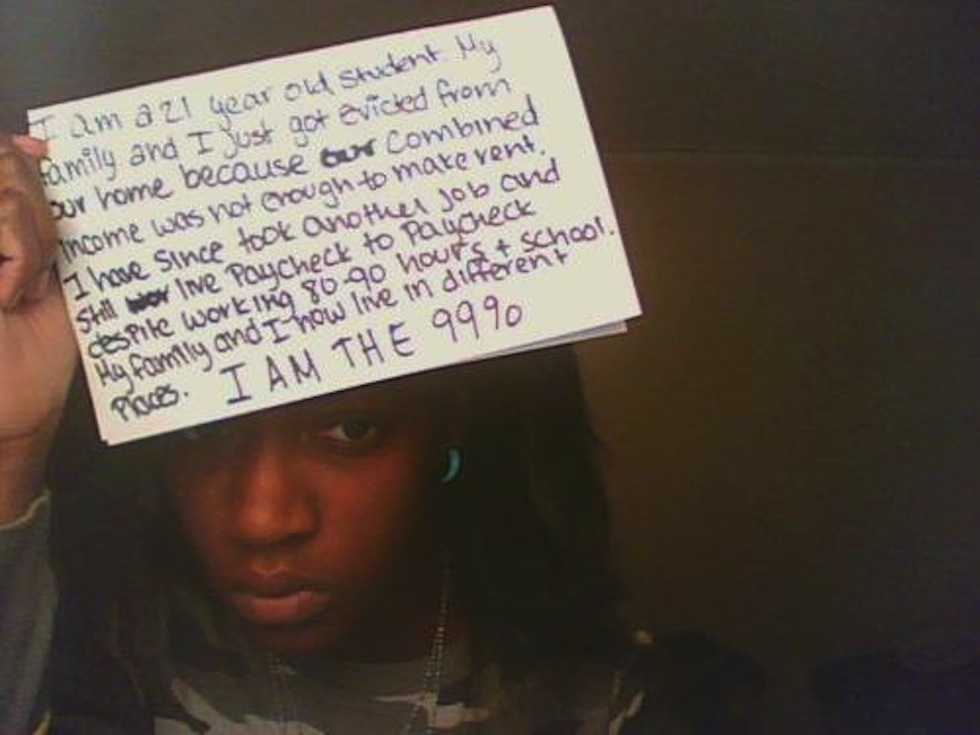 I am a 21 year old student. My
family and I just got evicted from
our home because our combined
income was not enough to make rent.
I have since took another job and
still live Paycheck to Paycheck
despite working 80-90 hours + school.
My family and I now live in different
Places. I AM THE 99%